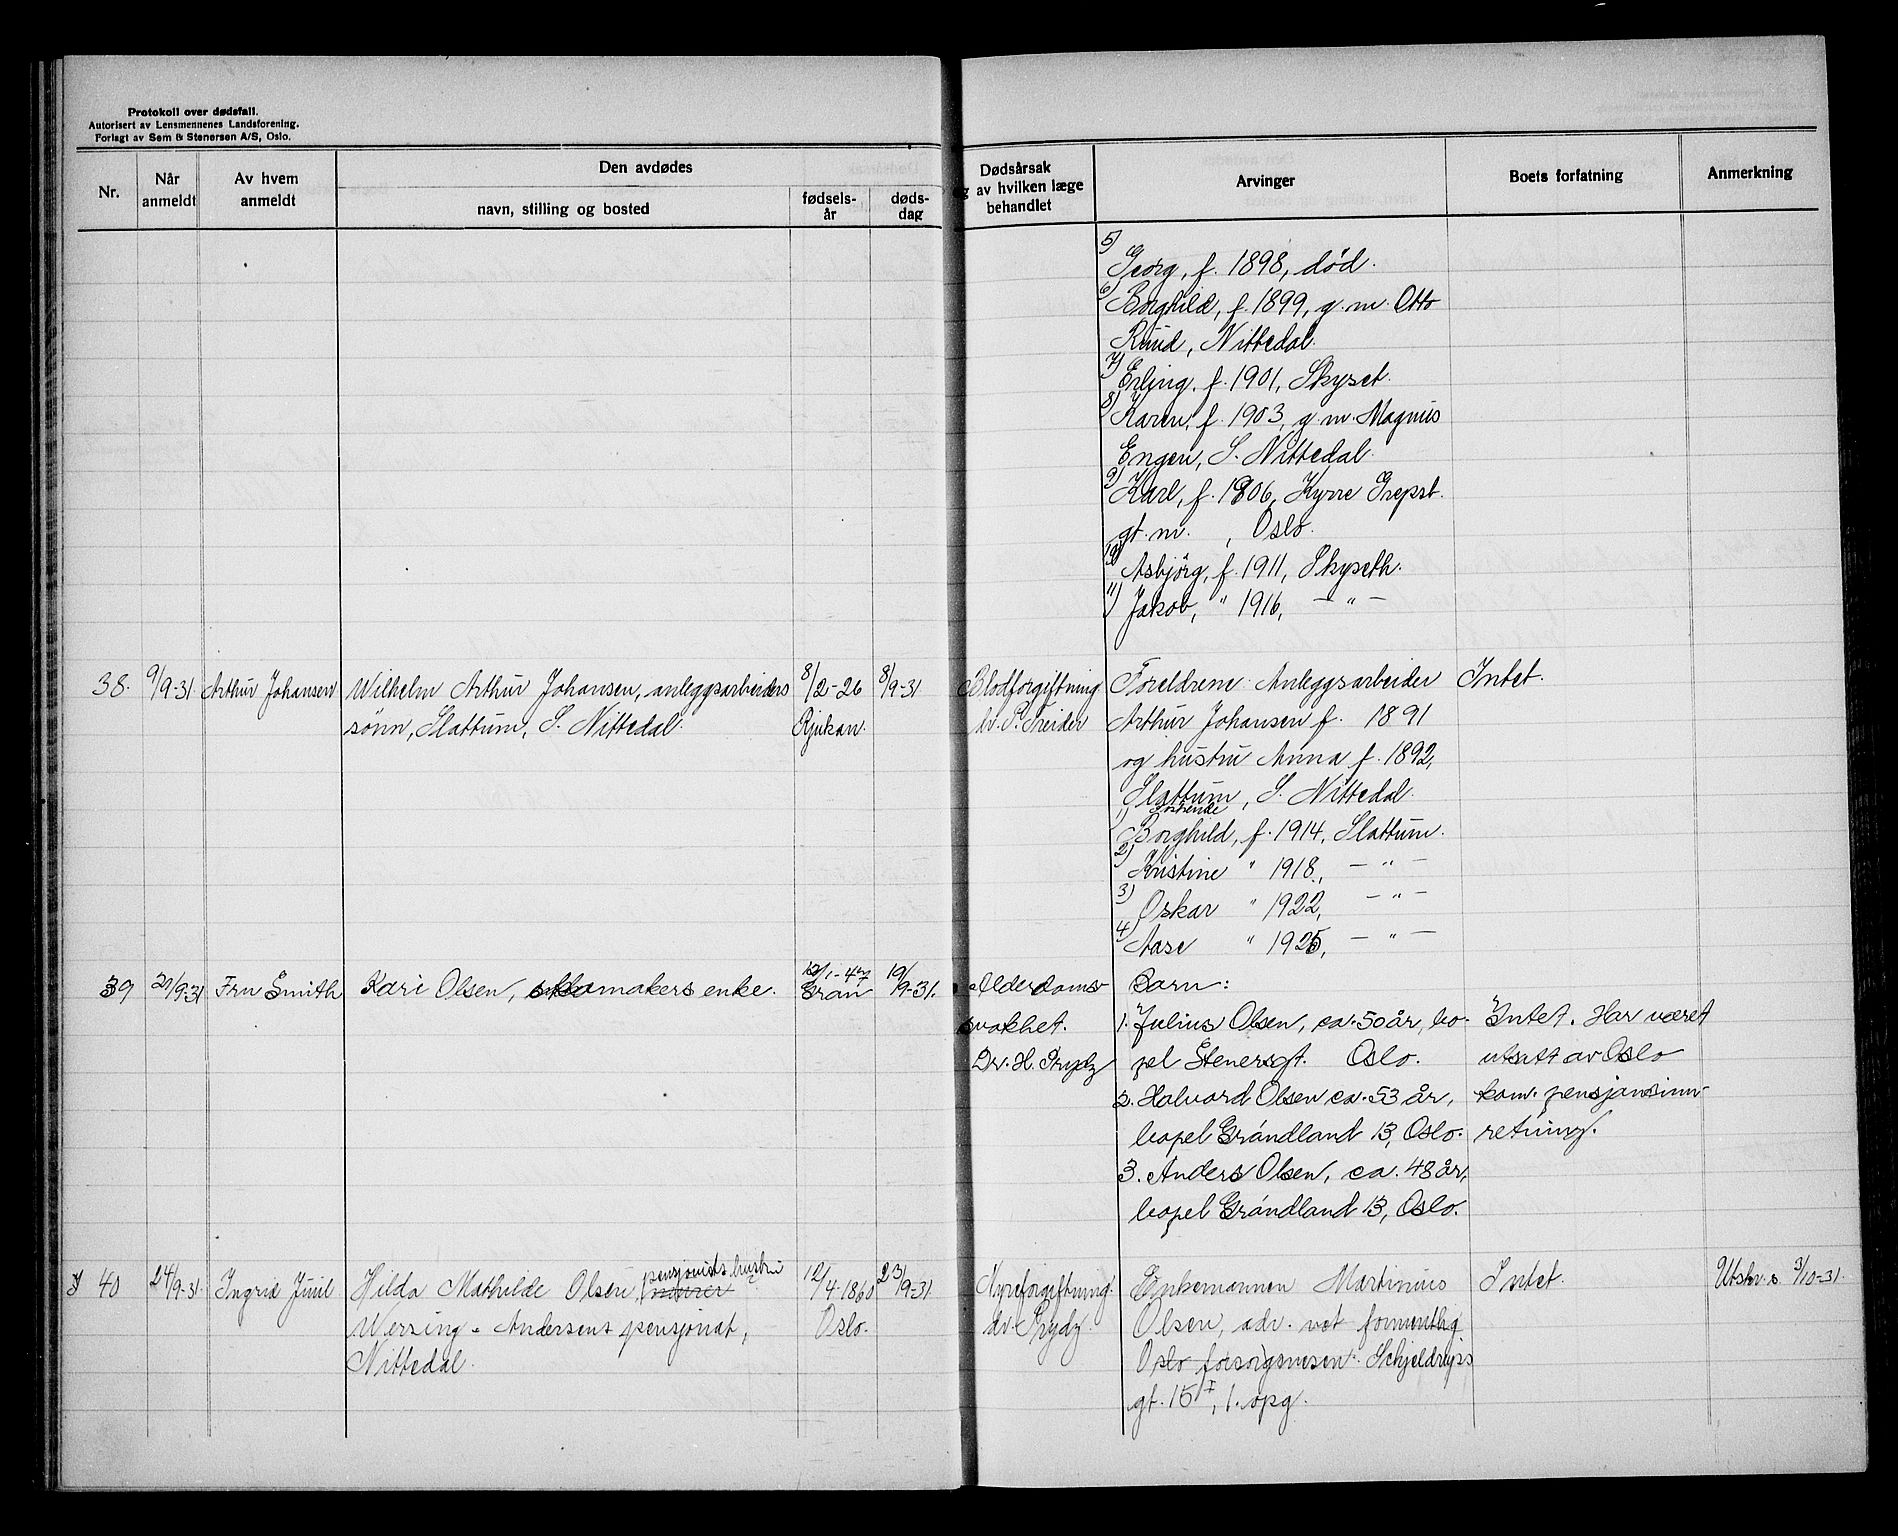 Protokoll over dødsfall.
Autorisert av Lensmennenes Landsforening.
Forlagt av Sem & Stenersen A/S, Oslo.
Nr.
Når anmeldt
Av hvem anmeldt
Den avdødes
navn, stilling og bosted
fødsels-år
døds-dag
Dødsårsak
og av hvilken læge
behandlet
Arvinger
Boets forfatning
Anmerkning
5) Georg, f. 1898, død.
6) Borghild, f. 1899, g. m. Otto
Ruud, Nittedal.
7) Erling, f. 1901, Skyset.
8) Karen, f. 1903, g. m. Magnus
Engen, S. Nittedal.
9) Karl, f. 1906, Kyrre Grepst.
gt. m. , Oslo.
10) Asbjörg, f. 1911, Skyseth.
11) Jakob, " 1916, — " —
38. 9/9-31 Arthur Johansen Wilhelm Arthur Johansen, anleggsarbeiders 8/2-26 8/9-31 Blodforgiftning Foreldrene Anleggsarbeider Intet.
sönn, Slattum, S. Nittedal. Rjukan. dr. P. Treider Arthur Johansen f. 1891
og hustru Anna f. 1892,
Slattum, S. Nittedal.
Söskende
1) Borghild, f. 1914, Slattum.
2) Kristine " 1918, — " —
3) Oskar " 1922, — " —
4) Aase " 1925, — " —
39 21/9-31 Fru Smith Kari Olsen, skomakers enke. 12/1-47 19/9-31. Alderdoms- Barn:
Gran
svakhet. 1. Julius Olsen, ca. 50 år, bo- Intet. Har været
Dr. H. Prydz pel Stenersgt. Oslo. utsatt av Oslo
2. Halvard Olsen ca. 53 år, kom. pensjonsinn-
bopel Gröndland 13, Oslo. retning.
3. Anders Olsen, ca. 48 år,
bopel Gröndland 13, Oslo.
pensjonists hustru
40 24/9-31 Ingrid Juul Hilda Mathilde Olsen, 12/4-1860 23/9-31. Nyreforgiftning. Enkemannen Martinius Intet. Utskr. s 3/10-31.
Werring-Andersens pensjonat, Oslo. dr. Prydz. Olsen, adr. vet formentlig
Nittedal. Oslo forsorgsvesen. Schjeldrups
gt. 15 I, 1. opg.